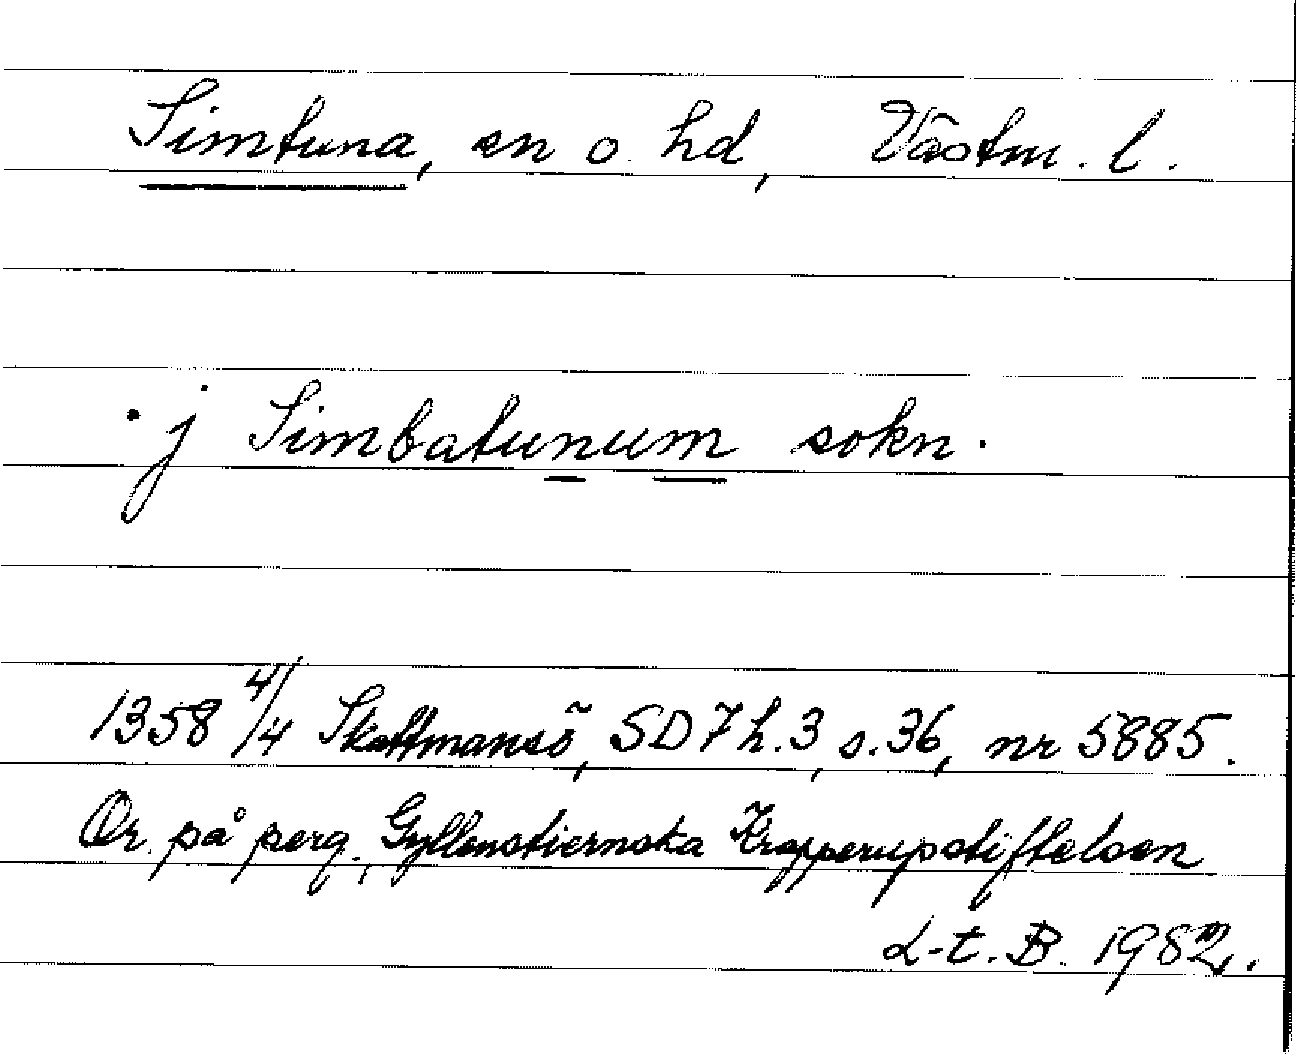 Simtuna, sn o hd, Västm. l.
· j Simbatunum sokn.
1358 4/4 Skattmansö, SD 7 h. 3, s. 36, nr 5885.
Or. på perg., Gyllenstiernska Krapperupstiftelsen
L-t. B. 1982.